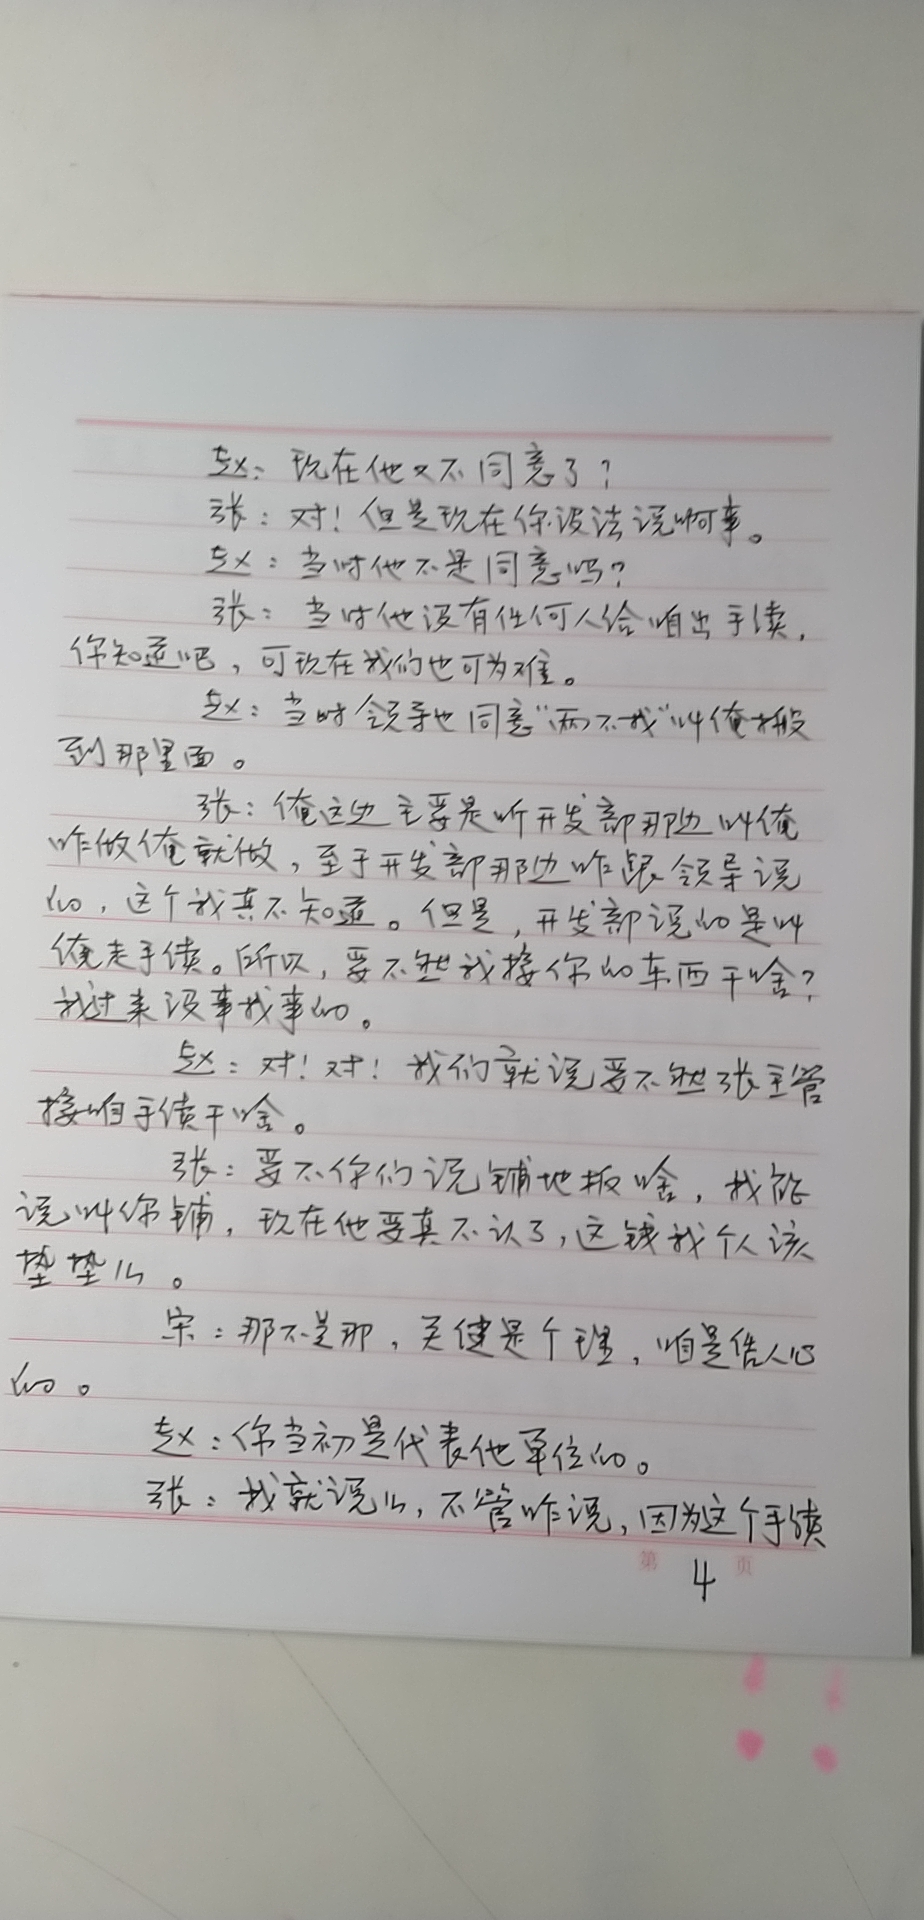 赵：现在他又不同意了？
张：对！但是现在你没法说啊事。
赵：当时他不是同意吗？
张：当时他没有任何人给咱出手续，
你知道吧，可现在我们也可为难。
赵：当时领导也同意“两不找”叫俺搬
到那里面。
张：俺这边主要是听开发部那边叫俺
咋做俺就做，至于开发部那边咋跟领导说
的，这个我真不知道。但是，开发部说的是叫
俺走手续。所以，要不然我接你的东西干啥？
我过来没事找事的。
赵：对！对！我们就说要不然张主管
接咱手续干啥。
张：要不你们说铺地板啥，我能
说叫你铺，现在他要真不认了，这钱我个人该
垫垫么。
宋：那不是那，关健是个理，咱是凭人心
的。
赵：你当初是代表他单位的。
张：我就说么，不管咋说，因为这个手续
第 4 页